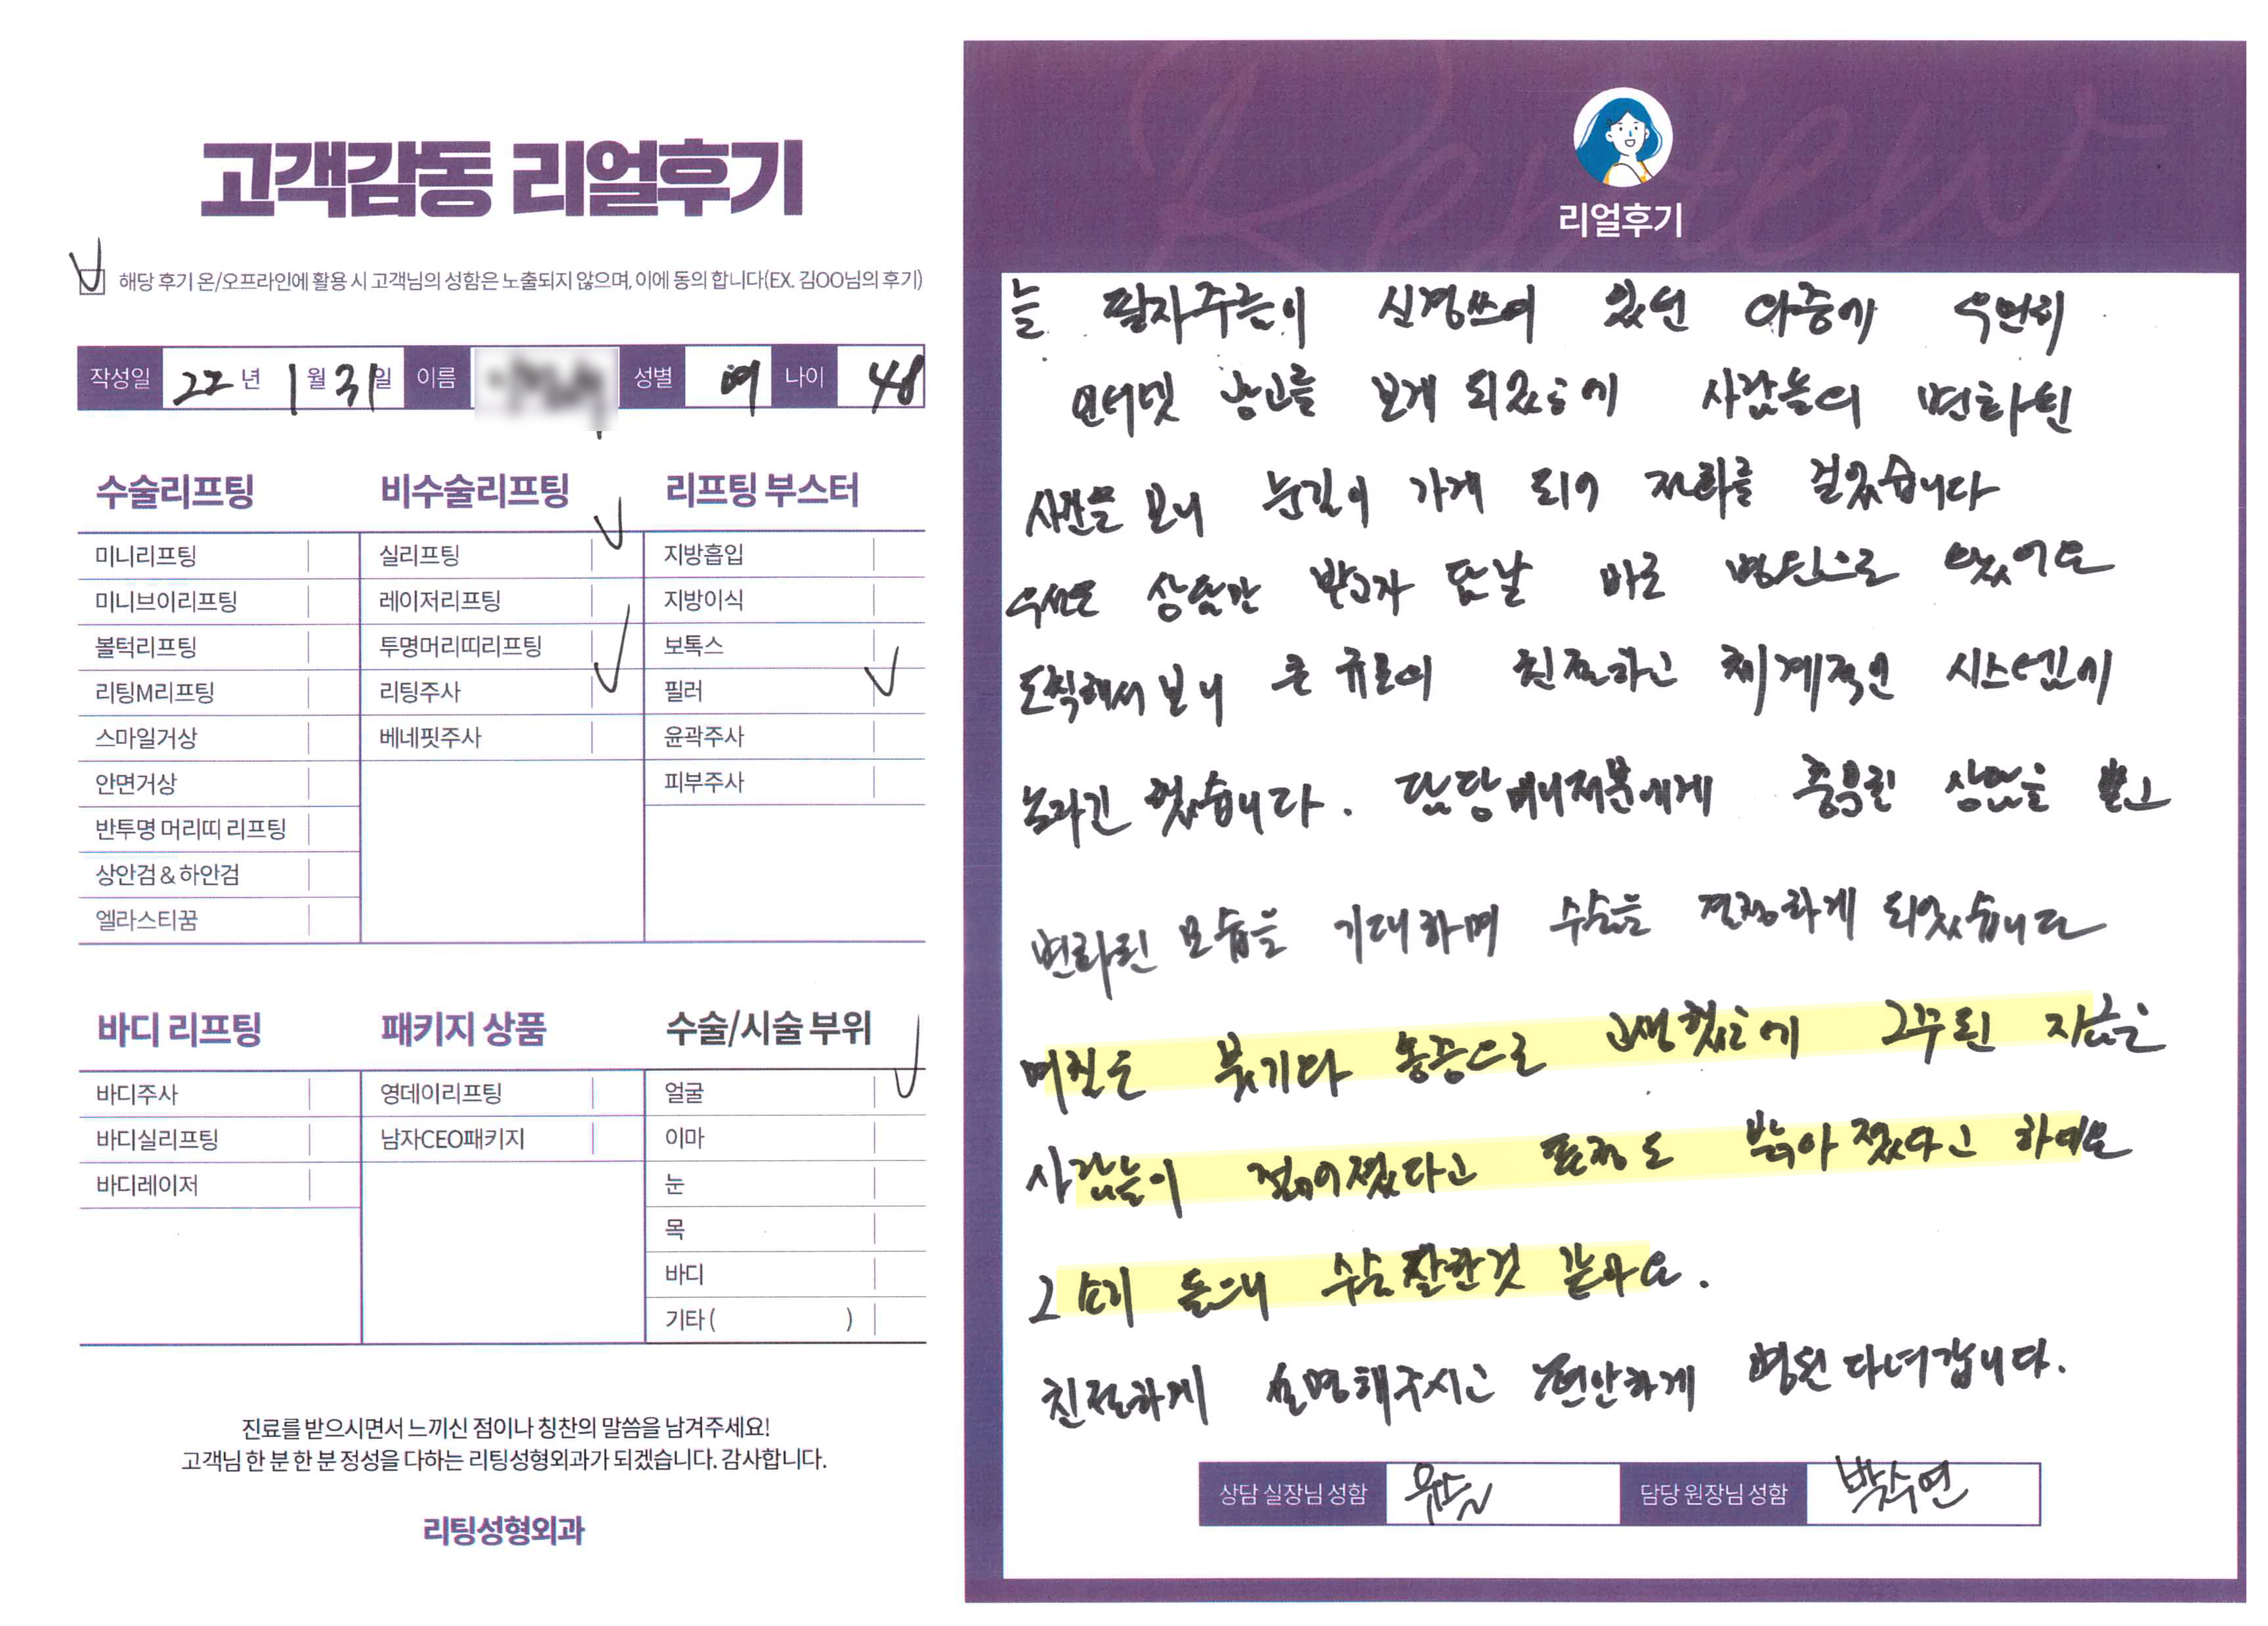 고객감동 리얼후기
해당 후기 온/오프라인에 활용 시 고객님의 성함은 노출되지 않으며, 이에 동의 합니다(EX. 김OO님의 후기)
작성일 22년 1월 31일 이름 성별 여 나이 48
수술리프팅
미니리프팅
미니브이리프팅
볼턱리프팅
리팅M리프팅
스마일거상
안면거상
반투명 머리띠 리프팅
상안검 & 하안검
엘라스티꿈
비수술리프팅
실리프팅
레이저리프팅
투명머리띠리프팅
리팅주사
베네핏주사
리프팅 부스터
지방흡입
지방이식
보톡스
필러
윤곽주사
피부주사
바디 리프팅
바디주사
바디실리프팅
바디레이저
패키지 상품
영데이리프팅
남자CEO패키지
수술/시술 부위
얼굴
이마
눈
목
바디
기타 ( )
진료를 받으시면서 느끼신 점이나 칭찬의 말씀을 남겨주세요!
고객님 한 분 한 분 정성을 다하는 리팅성형외과가 되겠습니다. 감사합니다.
리팅성형외과
Review
리얼후기
늘 팔자주름이 신경쓰여 있던 와중에 우연히
인터넷 광고를 보게 되었는데 사람들의 변화된
사진을 보니 눈길이 가게 되어 전화를 걸었습니다
우선은 상담만 받고자 담날 바로 병원으로 갔어요
도착해서 보니 큰 규모에 친절하고 체계적인 시스템에
놀라긴 했습니다. 담당매니저분에게 충분한 상담을 받고
변화된 모습을 기대하며 수술을 결정하게 되었습니다
며칠은 붓기다 통증으로 고생했는데 2주된 지금은
사람들이 젊어졌다고 표정도 밝아졌다고 하네요
그 소리 들으니 수술 잘한것 같아요.
친절하게 설명해주시고 편안하게 병원 다녀갑니다.
상담 실장님 성함
담당 원장님 성함 박수연